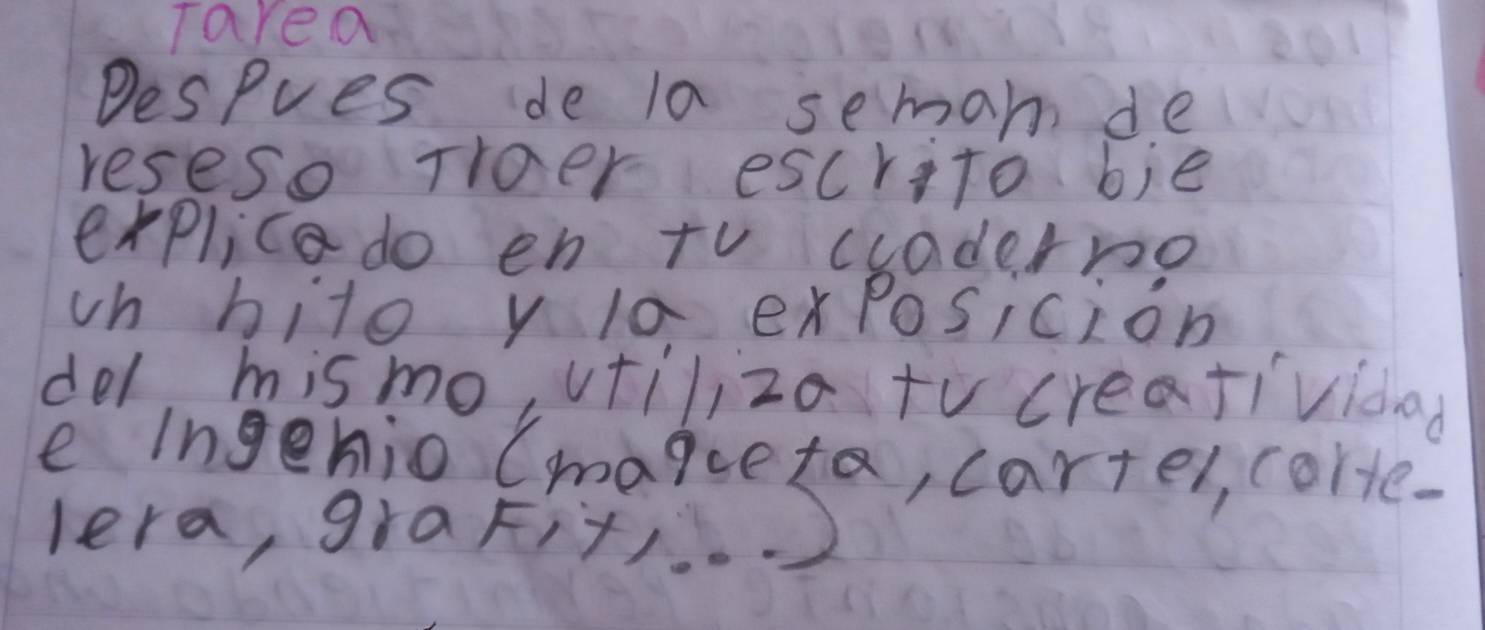 Tarea
Despues de la seman de
reseso Traer escrito bie
explicado en tu cuaderno
un hito y la exposición
del mismo, utiliza tu creatividad
e Ingenio (maqueta, cartel, carte-
lera, grafiti...)